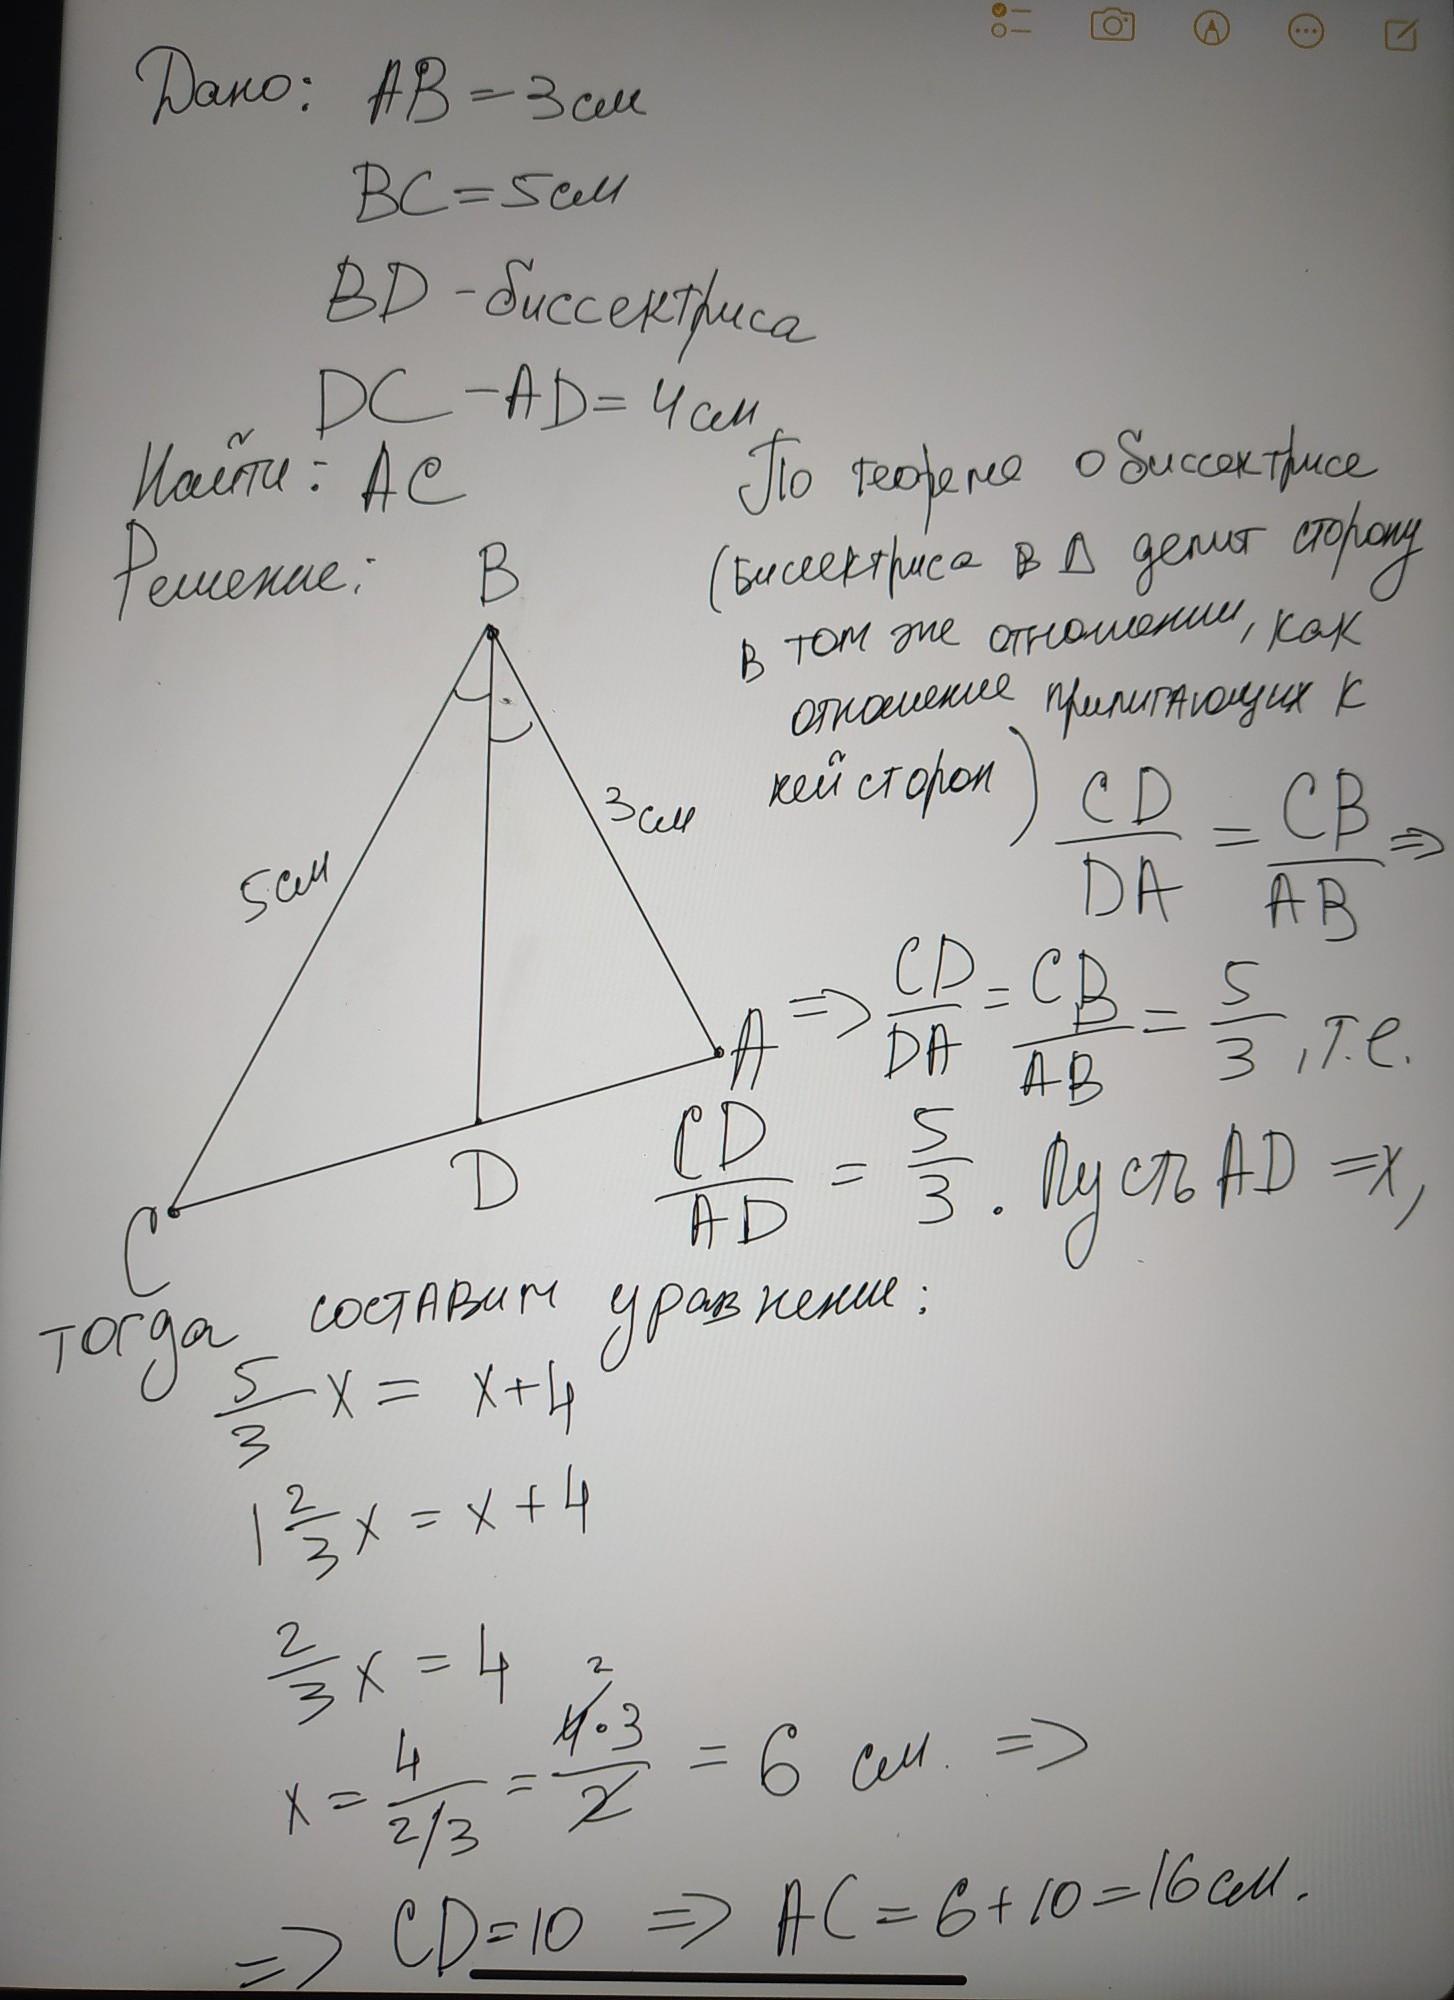 Дано: AB = 3 см
BC = 5 см
BD - биссектриса
DC - AD = 4 см
Найти: AC
Решение:
B
5 см
3 см
A
D
C
По теореме о биссектрисе
(биссектриса в Δ делит сторону
в том же отношении, как
отношение прилигающих к
ней сторон) CD/DA = CB/AB =>
=> CD/DA = CB/AB = 5/3, т.е.
CD/AD = 5/3. Пусть AD = x,
тогда составим уравнение:
5/3 x = x + 4
1 2/3 x = x + 4
2/3 x = 4
x = 4/(2/3) = 4·3/2 = 6 см. =>
2
=> CD = 10 => AC = 6 + 10 = 16 см.